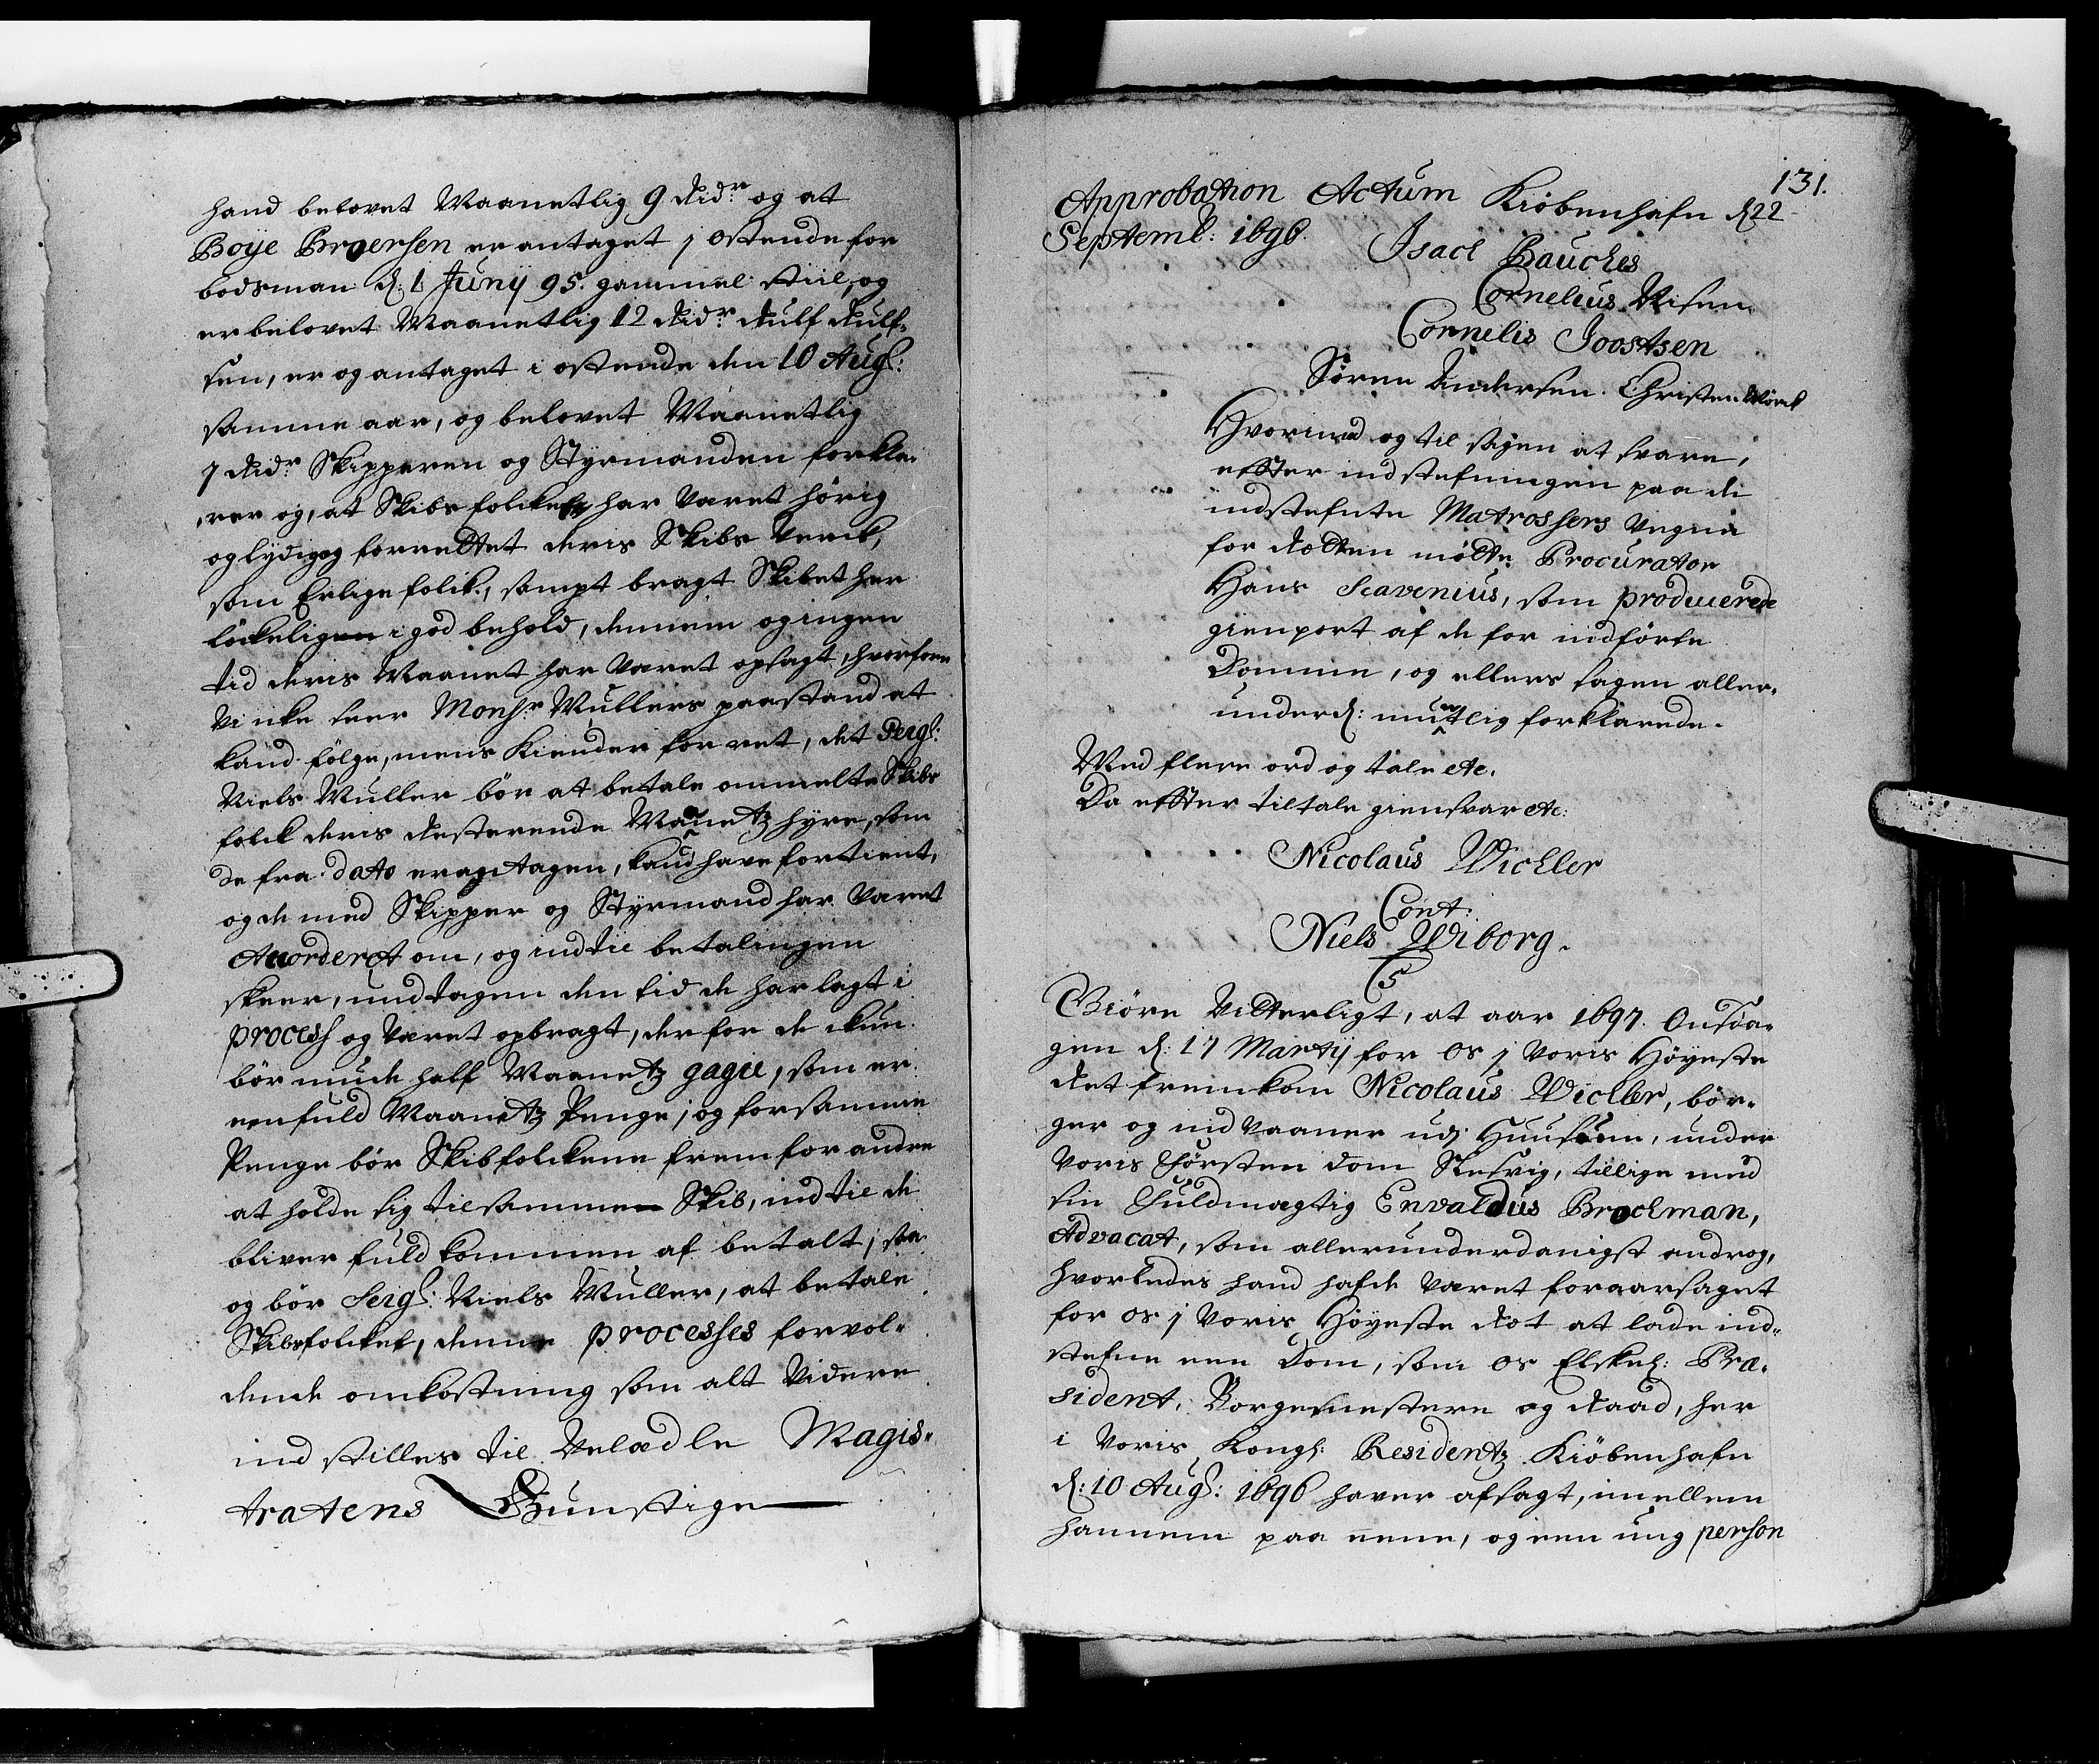 hand belovet Maanetlig 9 Rdr og at
Boÿe Broersen er antaget j Ostende for
bodsman d: 1 Junÿ 95. gammel Stiil, og
er belovet Maanetlig 12 Rdr Rulf Rulf-
sen, er og antaget i Ostende den 10 Aug:
samme aar, og belovet Maanetlig
7 Rdr Skipperen og Styrmanden forkla-
rer og, at Skibs folcket har Været hörig
og lydig og forrettet deris Skibs Verck,
som Erlige folck, sampt bragt Skibet her
löckeligen i god behold, dennem og ingen
tid deris Maanet har Været opsagt, hvorfore
Vi icke seer Monsr Müllers paastand at
kand fölge, mens Kiender for ret, det Sergt:
Niels Müller bör at betale ommelte Skibs
folck deris Resterende Maanetz hyre, som
de fra dato er antagen, kand have fortient,
og de med Skipper og Styrmand har Været
Accorderet om, og indtil betalingen
skeer, undtagen den tid de har lagt i
process og Været opbragt, der for de icun
bör nyde half Maanetz gagie, som er
een fuld Maanetz Penge; og for samme
Penge bör Skibfolckene frem for andre
at holde sig til samme Skib, indtil de
bliver fuldkommen af betalt; saa
og bör Sergt: Niels Müller, at betale
Skibsfolcket, denne processes forvol-
dende omkostning som alt Videre
ind stilles til Velædle Magis-
tratens Gunstige
131.
Approbation Actum Kiöbenhafn d 22
Septemb: 1696.
Isack Bauches
Cornelius Risen
Cornelis Joostsen
Sören Andersen. Christen Mörck
Hvorimod og til sagen at svare,
efter indstefningen paa de
indstefnte Matrossers Vegne
for Retten mötte Procurator
Hans Scavenius, som producerede
gienport af de for indförte
Domme, og ellers sagen aller-
underd: muntlig forklarede.
Med flere ord og tale etc.
Da efter tiltale giensvar etc:
Nicolaus Wichler
Cont:
Niels Wiborg.
Giöre Vitterligt, at aar 1697. Onsda-
gen d: 17 Martÿ for os j Voris Höyeste
Ret fremkom Nicolaus Wichler, bör-
ger og indvaaner udj Huusum, under
Voris Förstendom Slesvig, tillige med
sin Fuldmægtig Envaldus Brockman,
Advocat, som allerunderdanigst androg,
hvorledes hand hafde Været foraarsaget
for os j Voris Höyeste Ret at lade ind-
stefne een Dom, som os Elskel: Præ-
sident, Borgemestere og Raad, her
i Voris Kongl: Residentz Kiöbenhafn
d: 10 Aug: 1696 haver afsagt, imellem
hannem paa eene, og een ung person